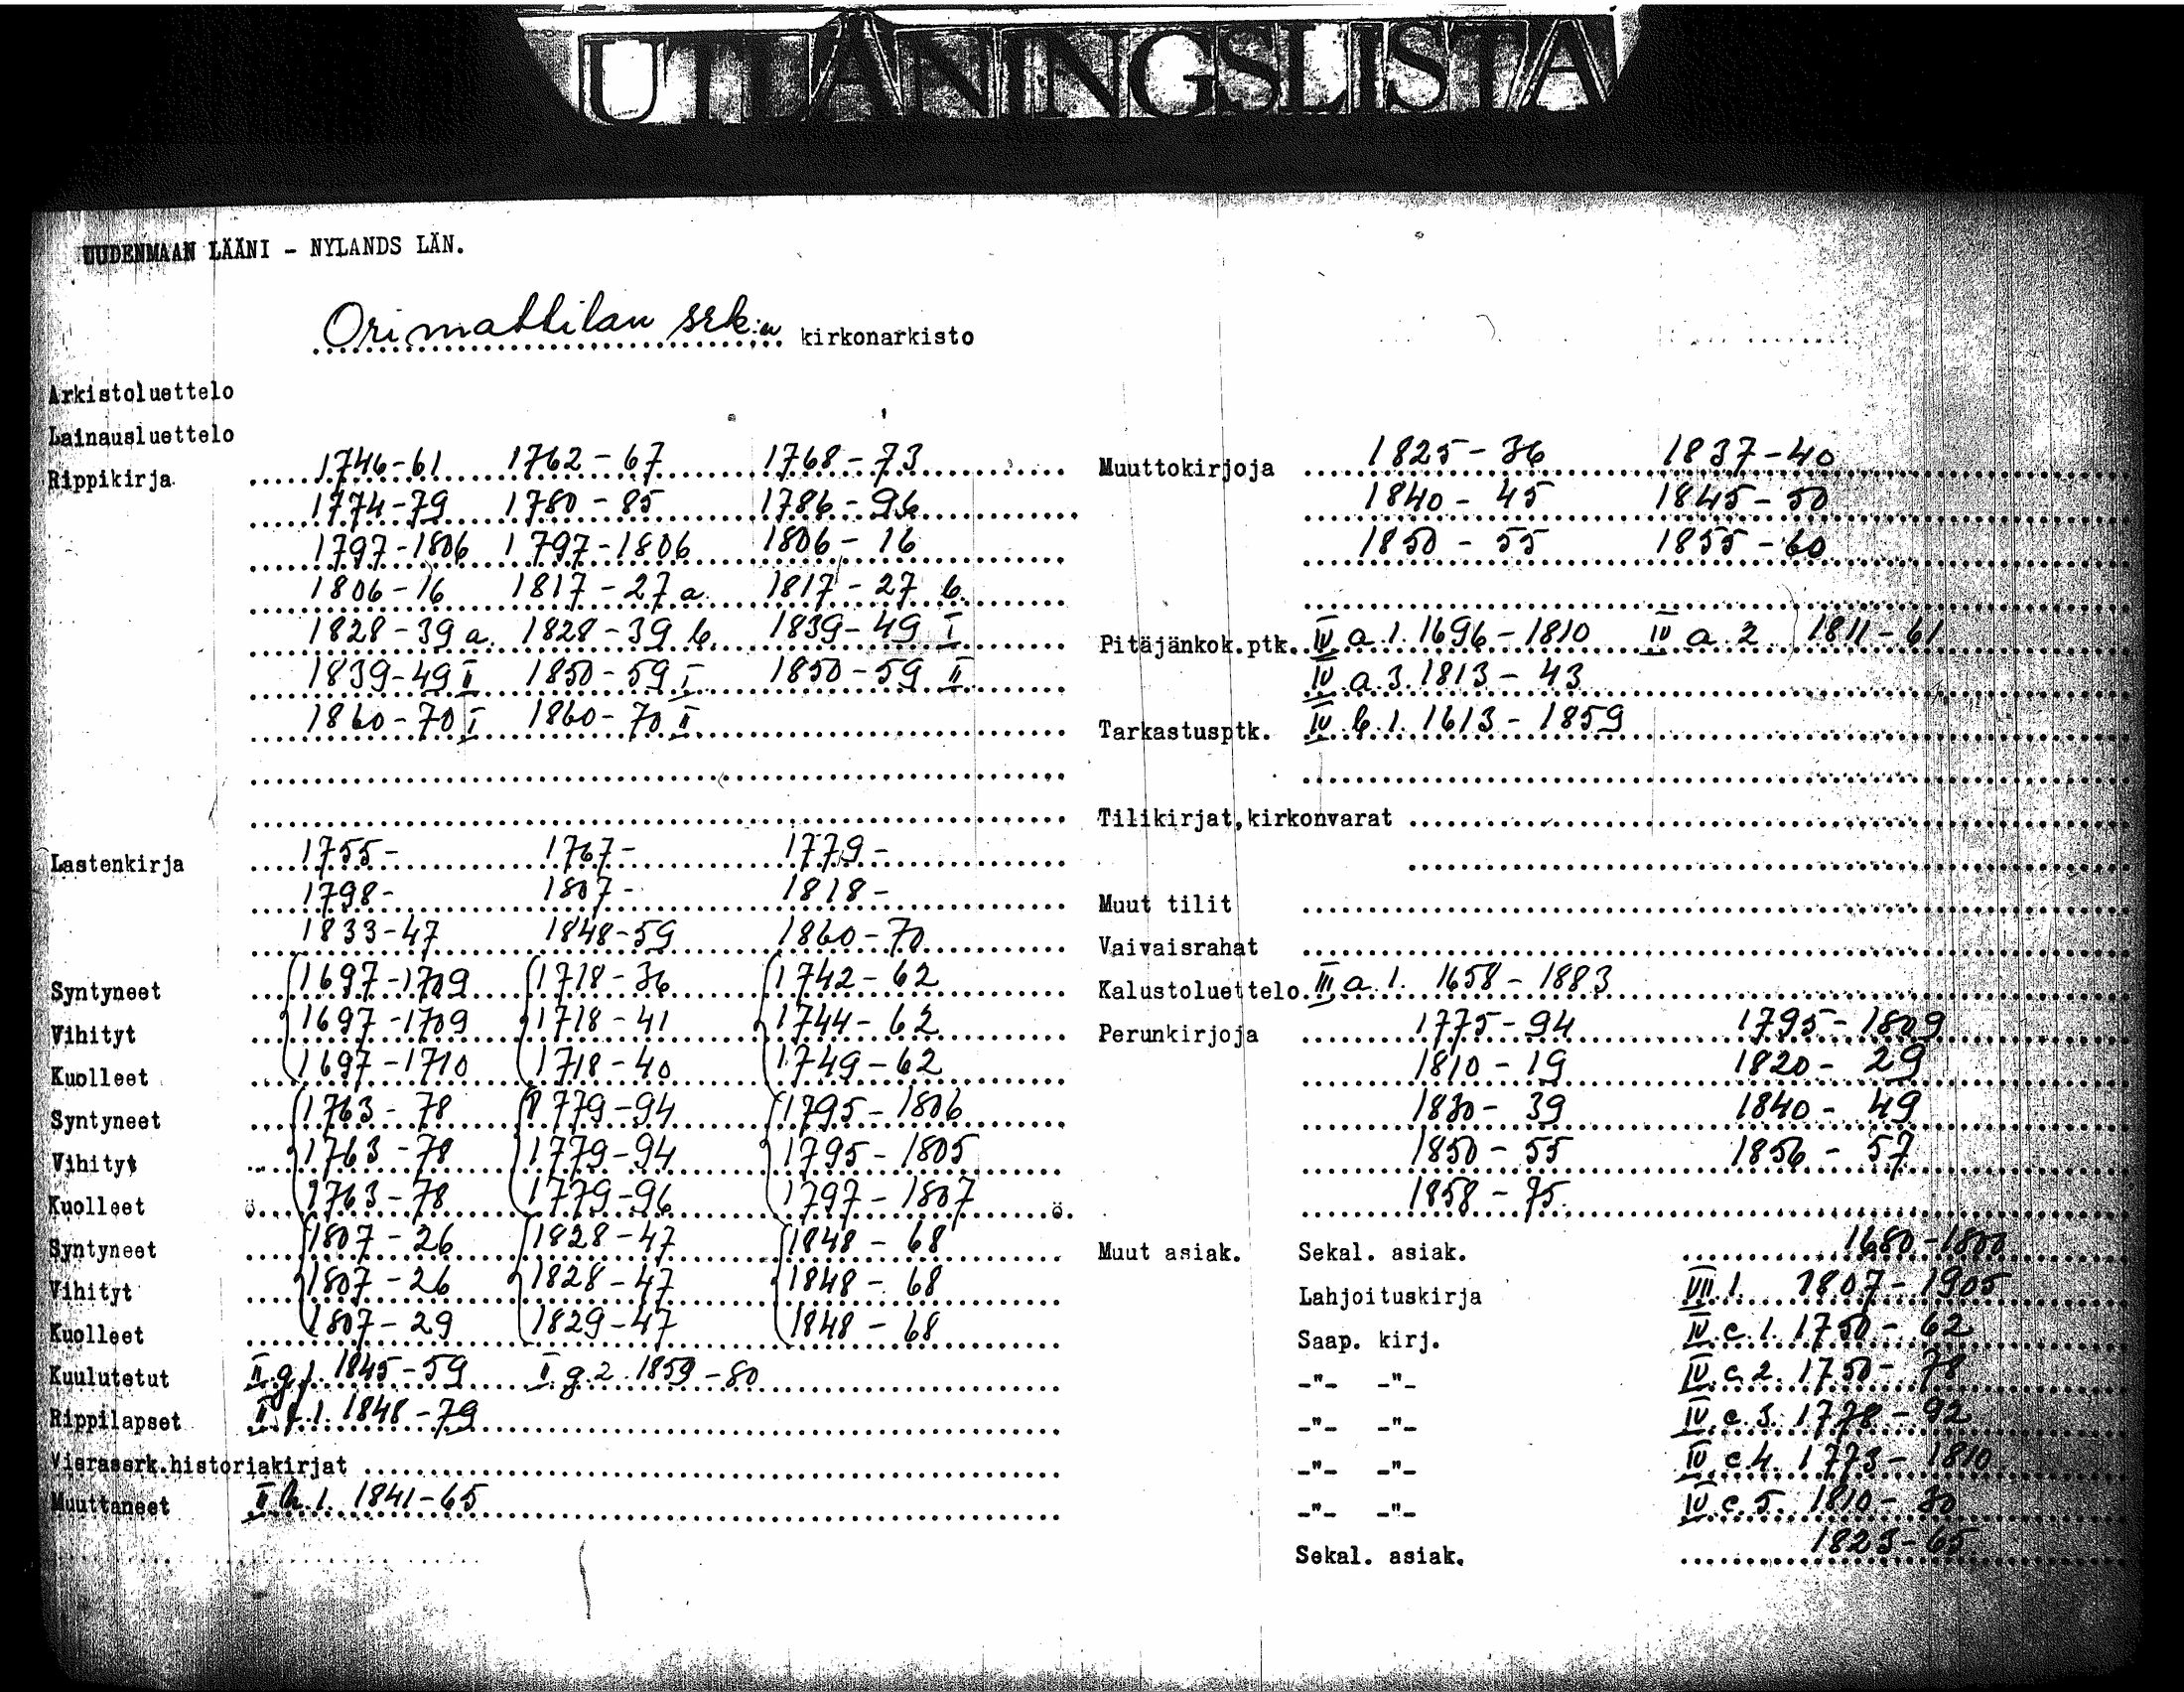 UTLÅNINGSLISTA
UUDENMAAN LÄÄNI - NYLANDS LÄN.
Orimattilan srk:n kirkonarkisto
Arkistoluettelo
Lainausluettelo
Rippikirja 1746-61 1762-67 1768-73
1774-79 1780-85 1786-96
1797-1806 1797-1806 1806-16
1806-16 1817-27 a. 1817-27 b.
1828-39 a. 1828-39 b. 1839-49 I
1839-49 II 1850-59 I 1850-59 II
1860-70 I 1860-70 II
Lastenkirja 1755- 1767- 1779-
1798- 1807- 1818-
1833-47 1848-59 1860-70
Syntyneet 1697-1709 1718-36 1742-62
Vihityt 1697-1709 1718-41 1744-62
Kuolleet 1697-1710 1718-40 1749-62
Syntyneet 1763-78 1779-94 1795-1806
Vihityt 1763-78 1779-94 1795-1805
Kuolleet 1763-78 1779-96 1797-1807
Syntyneet 1807-26 1828-47 1848-68
Vihityt 1807-26 1828-47 1848-68
Kuolleet 1807-29 1829-47 1848-68
Kuulutetut II g. 1. 1845-59 II g. 2. 1859-80
Rippilapset II f. 1. 1848-79
Vierasserk.historiakirjat
Muuttaneet II h. 1. 1841-65
Muuttokirjoja 1825-36 1837-40
1840-45 1845-50
1850-55 1855-60
Pitäjänkok.ptk. IV a. 1. 1696-1810 IV a. 2 1811-61
IV a. 3. 1813-43
Tarkastusptk. IV b. 1. 1613-1859
Tilikirjat,kirkonvarat
Muut tilit
Vaivaisrahat
Kalustoluettelo III a. 1. 1658-1883
Perunkirjoja 1775-94 1795-1809
1810-19 1820-29
1830-39 1840-49
1850-55 1856-57
1858-75.
Muut asiak. Sekal. asiak. 1680-1800
Lahjoituskirja VII 1. 1807-1905
Saap. kirj. IV c. 1. 1750-62
-"- -"- IV c. 2. 1750-78
-"- -"- IV c. 3. 1778-92
-"- -"- IV c. 4. 1773-1810
-"- -"- IV c. 5. 1810-30
Sekal. asiak. 1823-65